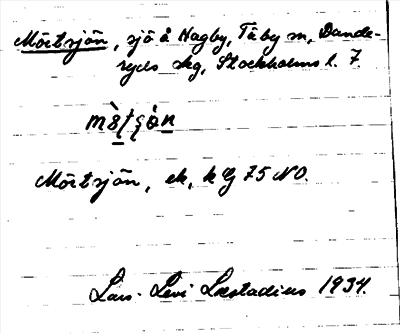 Mörtsjön, sjö å Hagby, Täby sn, Dande-
ryds skg, Stockholms l. 7.
Mörtsjön, ek, 75 NO.
Lars-Levi Læstadius 1934.